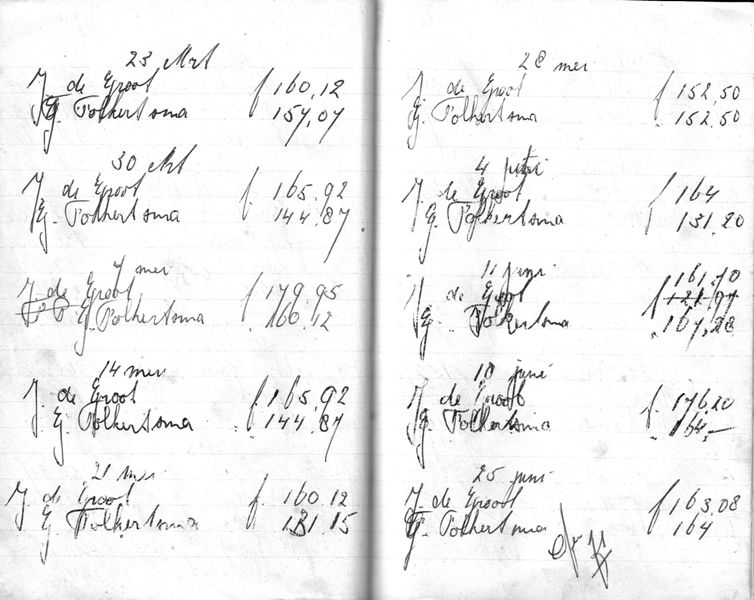 23 Mrt
J. de Groot f 160,12
G. Folkertsma 157,07
30 Mrt
J de Groot f. 165,92
G. Folkertsma . 144.87
7 mei
J de Groot f 179,95
G Folkertsma . 160.12
14 mei
J. de Groot f 165,92
G. Folkertsma . 144.87
21 mei
J. de Groot f. 160.12
G Folkertsma . 131.15
28 mei
J. de Groot f 152,50
G. Folkertsma . 152.50
4 juni
J. de Groot f 164
G. Folkertsma . 131.20
11 juni
161,10
J. de Groot f
G. Folkertsma . 167,28
18 juni
J. de Groot f. 176.20
G. Folkertsma . 164,—
25 juni
J. de Groot f 163,08
G. Folkertsma . 164